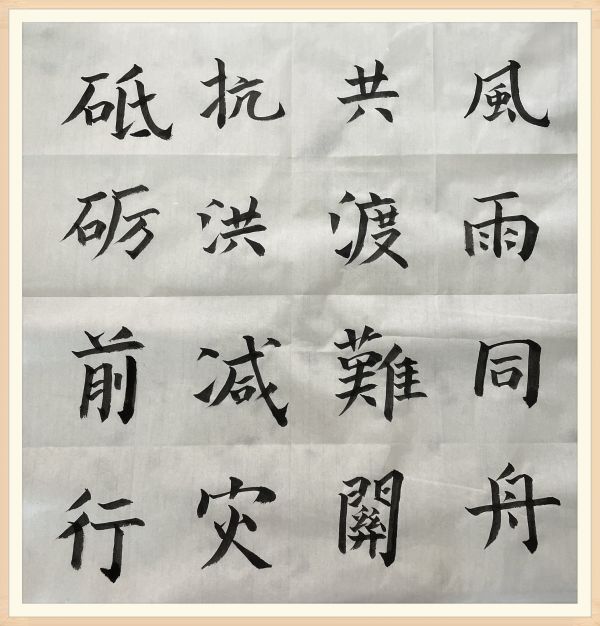 風雨同舟
共渡難關
抗洪减灾
砥砺前行